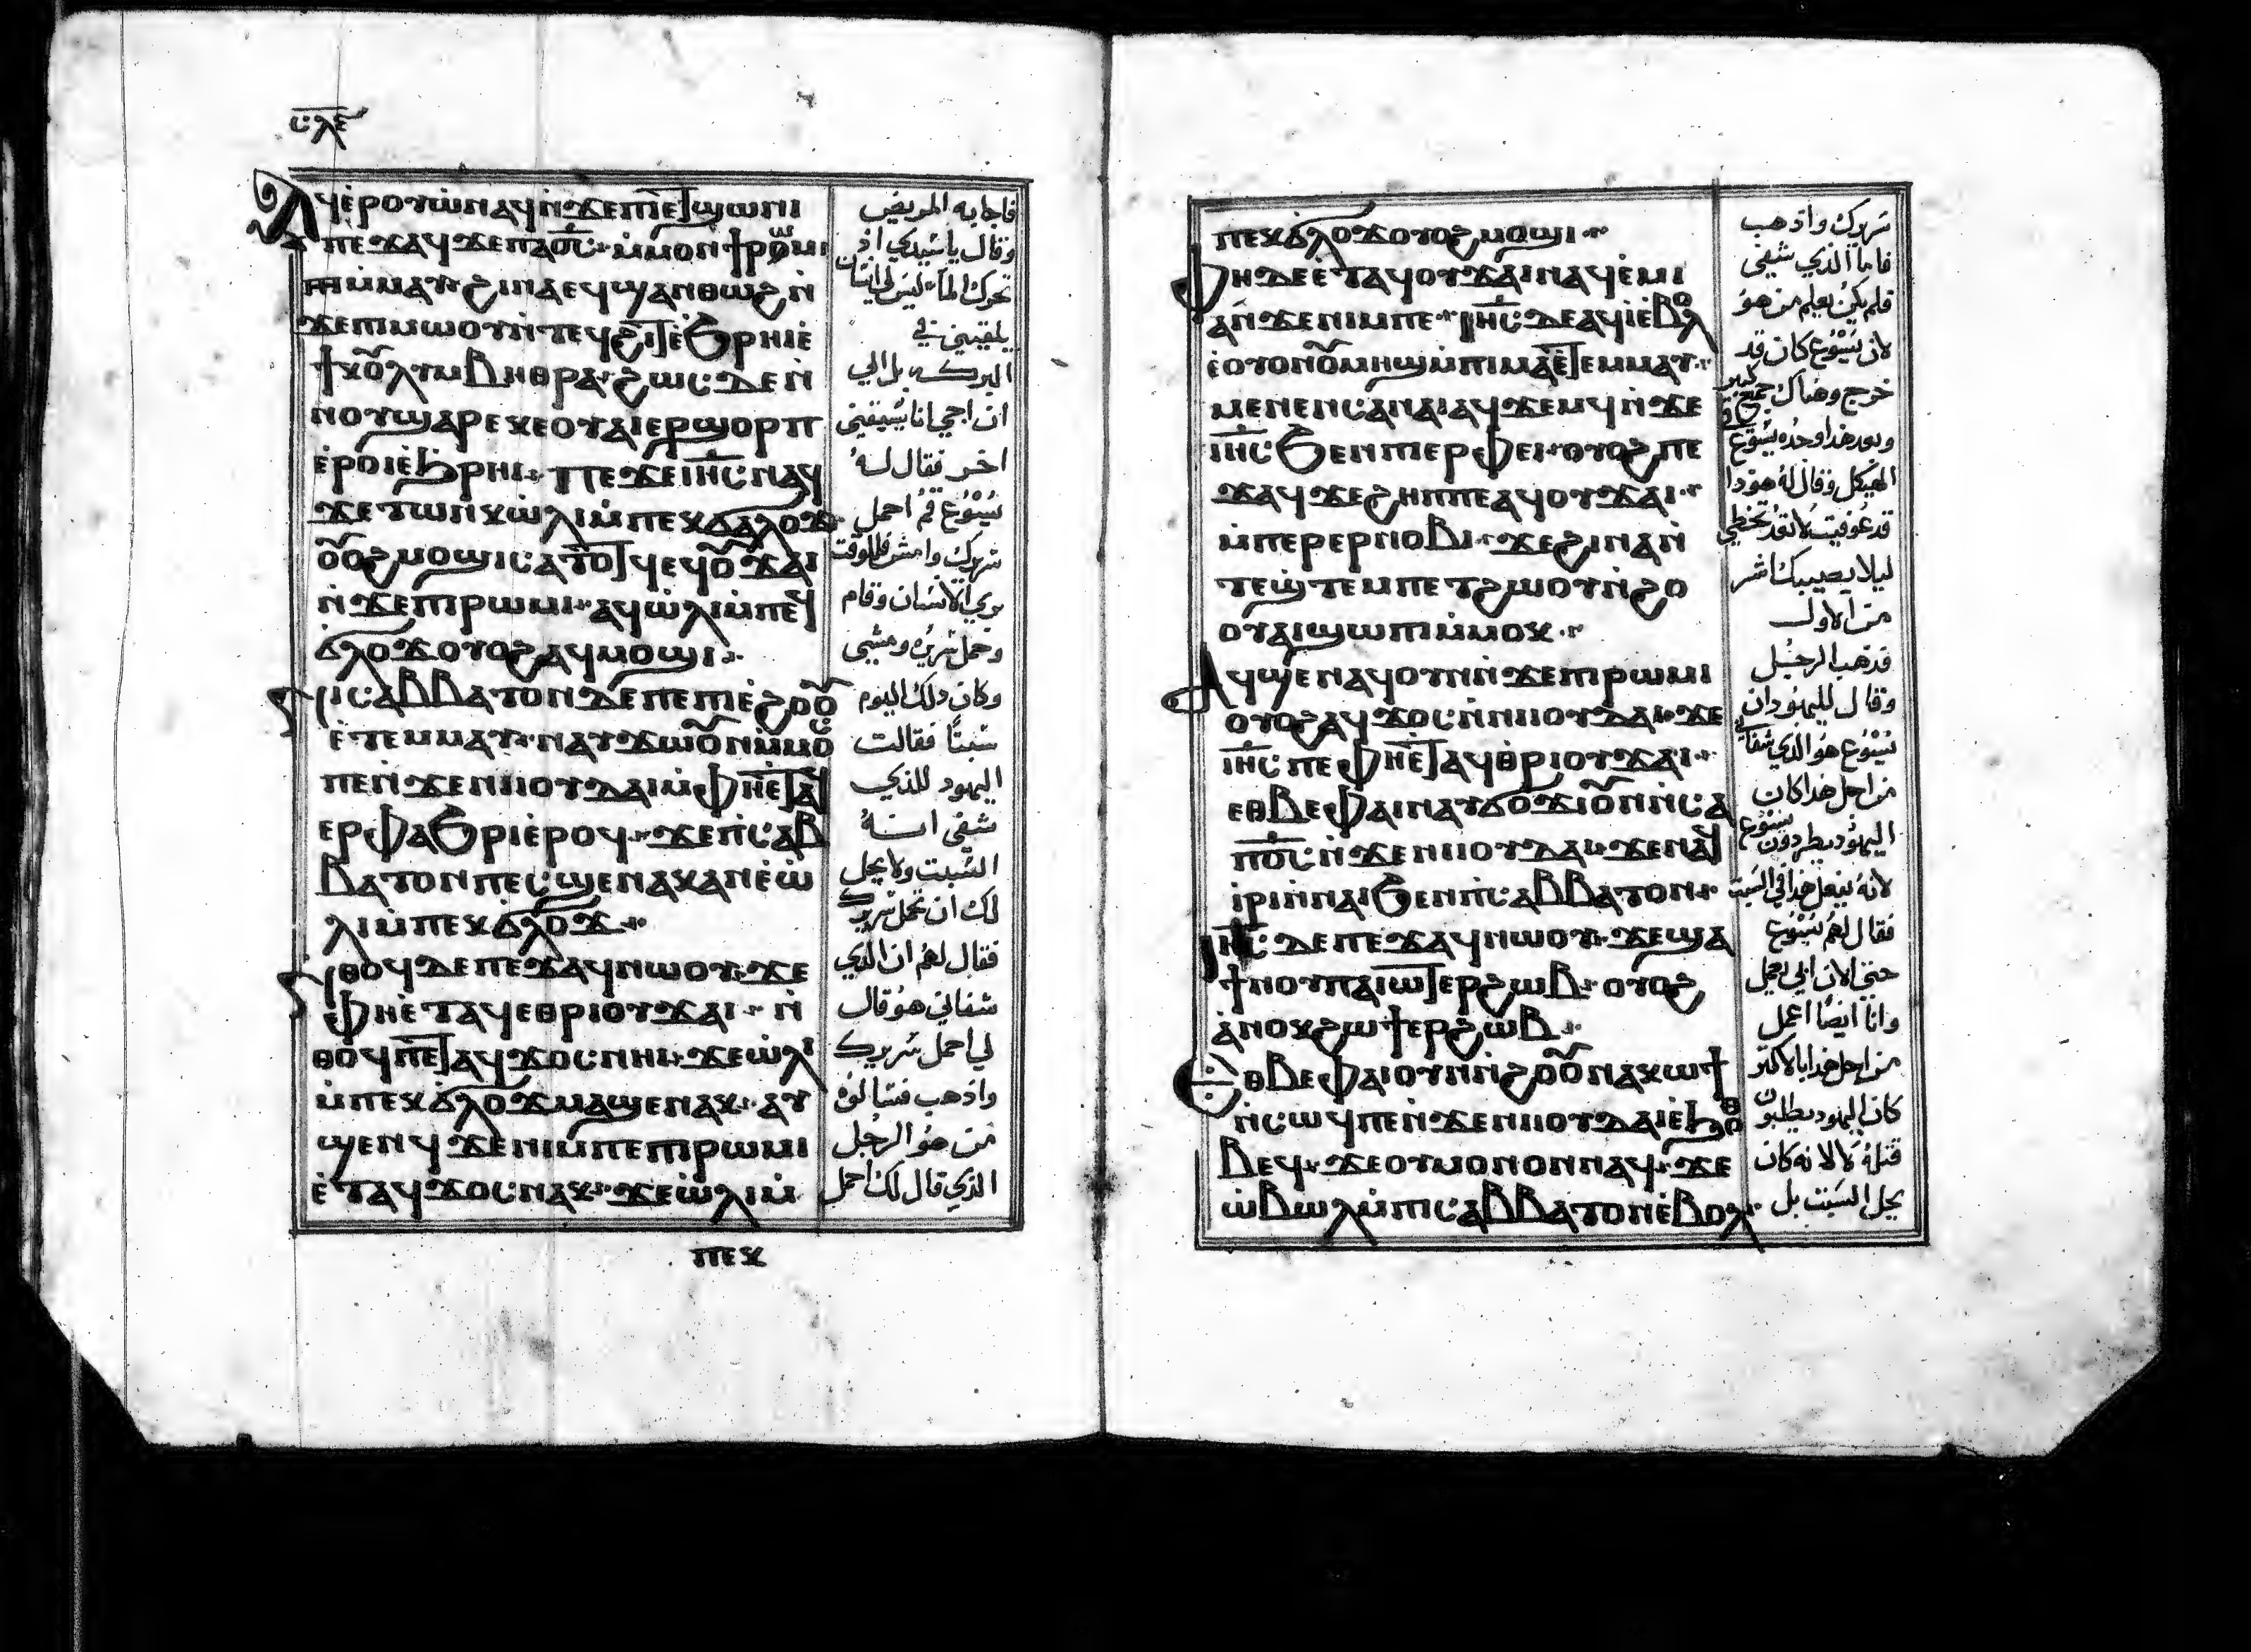 ⲥⲗⲉ
ⲁϥⲉ̀ⲣⲟⲩⲱ̀ⲛⲁϥⲛ̀ϫⲉⲡⲉⲧϣⲱⲛⲓ
ⲡⲉϫⲁϥϫⲉⲡⲁⲟ̅ⲥ̅ ⲙ̀ⲙⲟⲛϯⲣⲱⲙⲓ
ⲙ̀ⲙⲁⲩ ϩⲓⲛⲁⲉϥϣⲁⲛⲑⲱϩⲛ̀
ϫⲉⲡⲓⲙⲱⲟⲩⲛ̀ⲧⲉϥϩⲓⲧⲉ̀ϧⲣⲏⲓⲉ̀
ϯⲕⲟⲗⲩⲙⲃⲏⲑⲣⲁ ϩⲱⲥ ⲇⲉⲛ̀
ⲛⲟⲩϣⲁⲣⲉⲭⲉⲟⲩⲁⲓⲉⲣϣⲟⲣⲡ
ⲉ̀ⲣⲟⲓⲉ̀ϧⲣⲏⲓ ⲡⲉϫⲉⲓⲏ̅ⲥ̅ⲛⲁϥ
ϫⲉⲧⲱⲛⲕⲱ̀ⲗⲓⲙ̀ⲡⲉⲕϭⲗⲟϫ
ⲟⲩⲟϩⲙⲟϣⲓⲥⲁⲧⲟⲧϥⲉϥⲟⲩϫⲁⲓ
ⲛ̀ϫⲉⲡⲓⲣⲱⲙⲓ ⲁϥⲱ̀ⲗⲓⲙ̀ⲡⲉϥ
ϭⲗⲟϫⲟⲩⲟϩⲁϥⲙⲟϣⲓ
ⲛⲓⲥⲁⲃⲃⲁⲧⲟⲛⲇⲉⲡⲉⲡⲓⲉ̀ϩⲟⲟⲩ
ⲉ̀ⲧⲉⲙⲙⲁⲩ ⲛⲁⲩϫⲱⲟⲩⲛⲙ̀ⲙⲟⲥ
ⲡⲉⲛ̀ϫⲉⲛⲓⲓⲟⲩⲇⲁⲓⲙ̀ⲫⲏⲉⲧⲁϥ
ⲉⲣⲫⲁϧⲣⲓⲉ̀ⲣⲟϥ ϫⲉⲡ̀ⲥⲁⲃ
ⲃⲁⲧⲟⲛⲡⲉⲥϣⲉⲛⲁⲕⲁⲛⲉ̀ⲱ̀
ⲗⲓⲙ̀ⲡⲉⲕϭⲗⲟϫ
ⲛⲑⲟϥⲇⲉⲡⲉϫⲁϥⲛⲱⲟⲩ ϫⲉ
ⲫⲏⲉ̀ⲧⲁϥⲉⲑⲣⲓⲟⲩϫⲁⲓ ⲛ̀
ⲑⲟϥⲡⲉⲧⲁϥϫⲟⲥⲛⲏⲓ ϫⲉⲱ̀ⲗⲓ
ⲙ̀ⲡⲉⲕϭⲗⲟϫⲙⲁϣⲉⲛⲁⲕ ⲁⲩ
ϣⲉⲛϥ ϫⲉⲛⲓⲙ̀ⲡⲉⲡⲓⲣⲱⲙⲓ
ⲉ̀ⲧⲁϥϫⲟⲥⲛⲁⲕ ϫⲉⲱ̀ⲗⲓⲙ̀
ⲡⲉⲕ
فاجابه المريض
وقال ياسيدي اذ
تحرك الما ليس لي انسان
يلقيني في
البركه بل الي
ان اجي انا يسبقني
اخر فقال له
يسوع قم احمل
سريرك وامش فللوقت
بري الانسان وقام
وحمل سريره ومشي
وكان ذلك اليوم
سبتا فقالت
اليهود للذي
شفي انه
السبت ولا يحل
لك ان تحمل سريرك
فقال لهم ان الذي
شفاني هو قال
لي احمل سريرك
واذهب فسالوه
من هو الرجل
الذي قال لك احمل
ⲡⲉⲕϭⲗⲟϫⲟⲩⲟϩⲙⲟϣⲓ
ⲫⲏⲇⲉⲉ̀ⲧⲁϥⲟⲩϫⲁⲓⲛⲁϥⲉ̀ⲙⲓ
ⲁⲛϫⲉⲛⲓⲙⲡⲉ ⲓⲏ̅ⲥ̅ⲇⲉⲁϥⲓⲉ̀ⲃⲟⲗ
ⲉ̀ⲟⲩⲟⲛⲟⲩⲙⲏϣⲙ̀ⲡⲓⲙⲁⲉ̀ⲧⲉⲙⲙⲁⲩ
ⲙⲉⲛⲉⲛⲥⲁⲛⲁⲓⲁϥϫⲉⲙϥⲛ̀ϫⲉ
ⲓⲏ̅ⲥ̅ϧⲉⲛⲡⲓⲉⲣⲫⲉⲓ ⲟⲩⲟϩⲡⲉ
ϫⲁϥϫⲉϩⲏⲡⲡⲉⲁϥⲟⲩϫⲁⲓ
ⲙ̀ⲡⲉⲣⲉⲣⲛⲟⲃⲓ ϫⲉϩⲓⲛⲁⲛ̀
ⲧⲉϣⲧⲉⲙⲡⲉⲧϩⲱⲟⲩⲛ̀ϩⲟ
ⲟⲩⲁⲓϣⲱⲡⲓⲙ̀ⲙⲟⲕ
ⲁϥϣⲉⲛⲁϥⲟⲩⲛⲛ̀ϫⲉⲡⲓⲣⲱⲙⲓ
ⲟⲩⲟϩⲁϥϫⲟⲥⲛ̀ⲛⲓⲓⲟⲩⲇⲁⲓ ϫⲉ
ⲓⲏ̅ⲥ̅ⲡⲉⲫⲏⲉⲧⲁϥⲑⲣⲓⲟⲩϫⲁⲓ
ⲉⲑⲃⲉⲫⲁⲓⲛⲁⲩϭⲟϫⲓⲟⲩⲛⲛ̀ⲥⲁ
ⲡⲟ̅ⲥ̅ⲛ̀ϫⲉⲛⲓⲓⲟⲩⲇⲁⲓ ϫⲉⲛⲁϥ
ⲓⲣⲓⲛ̀ⲛⲁⲓϧⲉⲛⲡ̀ⲥⲁⲃⲃⲁⲧⲟⲛ
ⲓⲏ̅ⲥ̅ ⲇⲉⲡⲉϫⲁϥⲛⲱⲟⲩ ϫⲉϣⲁ
ϯⲛⲟⲩⲡⲁⲓⲱⲧⲉⲣϩⲱⲃ ⲟⲩⲟϩ
ⲁ̀ⲛⲟⲕϩⲱϯⲉⲣϩⲱⲃ
ⲉⲑⲃⲉⲫⲁⲓⲟⲩⲛⲛ̀ϩⲟⲟⲩⲛⲁⲩⲕⲱϯ
ⲛ̀ⲥⲱϥⲡⲉⲛ̀ϫⲉⲛⲓⲓⲟⲩⲇⲁⲓⲉ̀ϧⲟⲑ
ⲃⲉϥ ϫⲉⲟⲩⲙⲟⲛⲟⲛⲛⲁϥ ϫⲉ
ⲱ̀ⲃⲱⲗⲙ̀ⲡⲓⲥⲁⲃⲃⲁⲧⲟⲛⲉ̀ⲃⲟⲗ
سريرك واذهب
فاما الذي شفي
فلم يكن يعلم من هو
لان يسوع كان قد
خرج وهناك جمع كبير
وبعد هذا وجده يسوع في
الهيكل وقال له هوذا
قد عوفيت لا تعد تخطي
ليلا يصيبك اشر
من الاول
فذهب الرجل
وقال لليهود ان
يسوع هو الذي شفاني
من اجل هذا كان
اليهود يطردون يسوع
لانه يفعل هذا في السبت
فقال لهم يسوع
حتي الان ابي يعمل
وانا ايضا اعمل
من اجل هذا بالاكثر
كان اليهود يطلبون
قتله لا لانه كان
يحل السبت بل